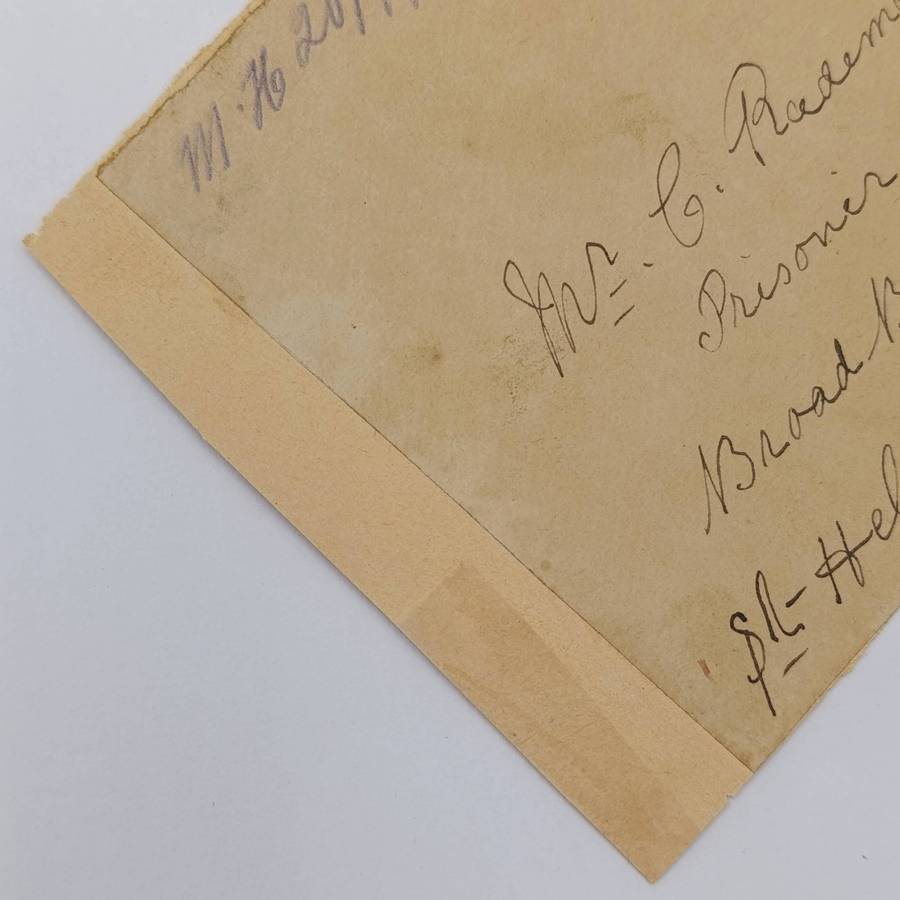 M. H 20/
Mr. C. Radem
Prisoner
Broad B
St Hel